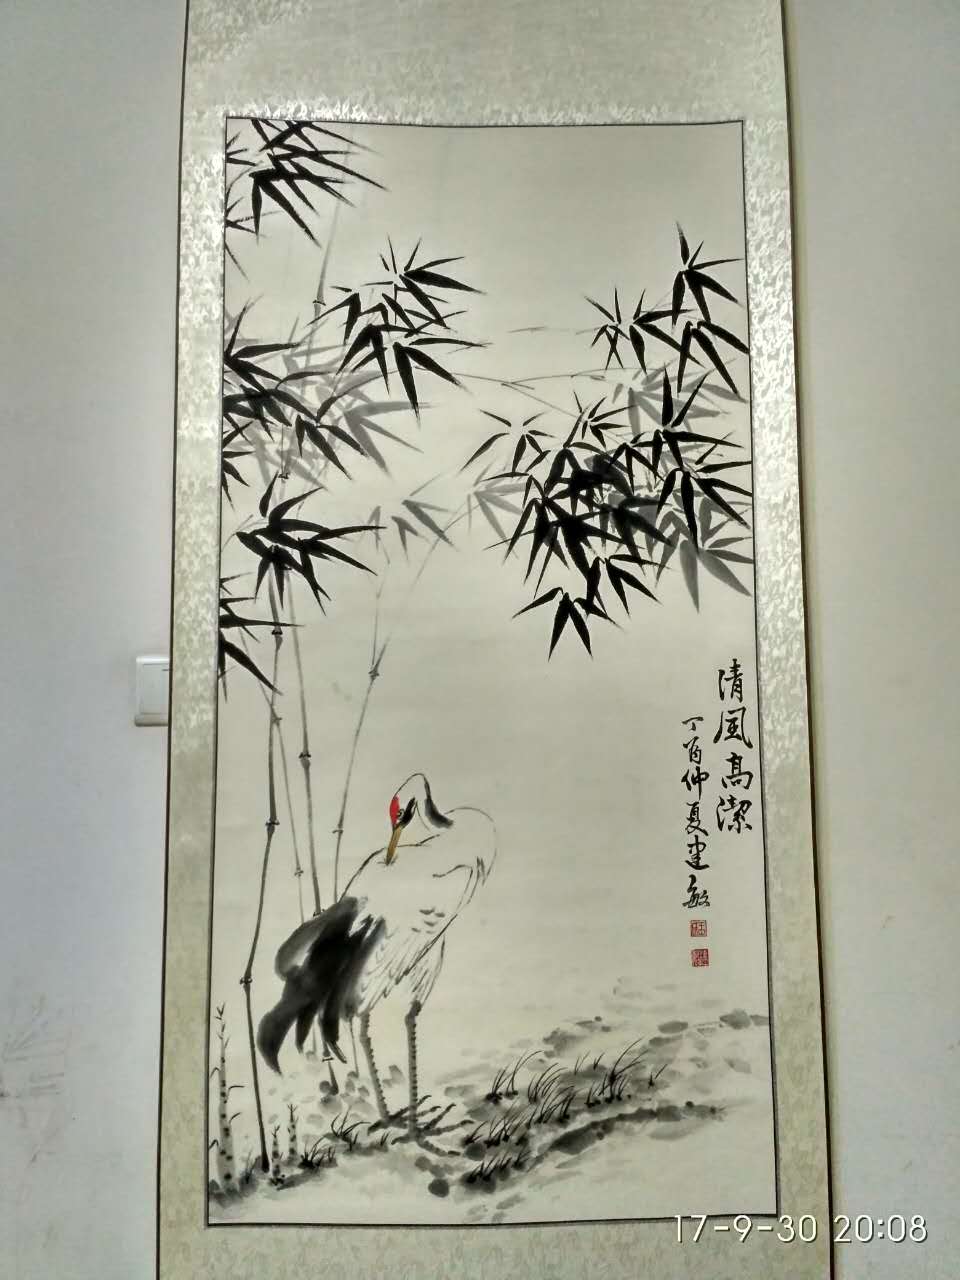 清風高潔
丁酉仲夏建敏
17-9-30 20:08